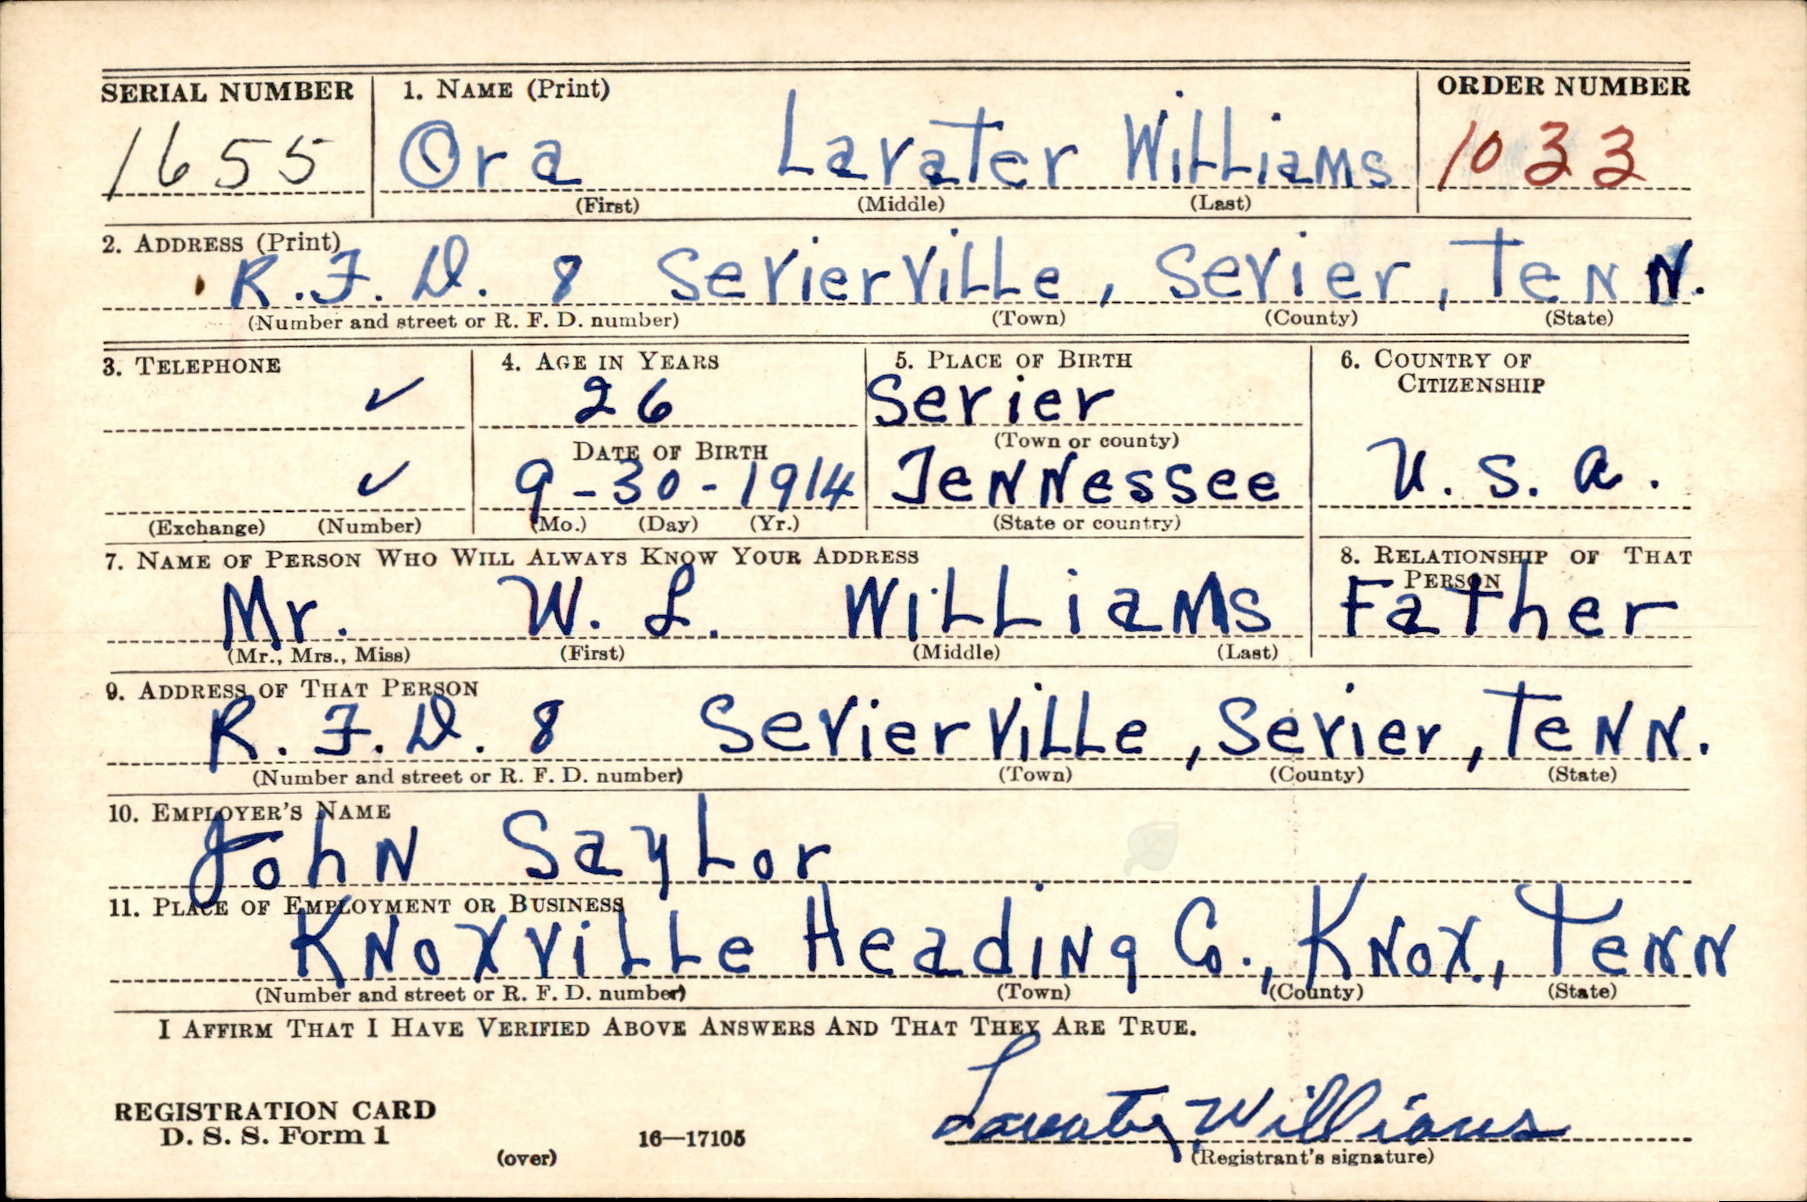 SERIAL NUMBER 1. NAME (Print) ORDER NUMBER
1655 Ora Lavater Williams 1033
(First) (Middle) (Last)
2. ADDRESS (Print)
R.F.D. 8 Sevierville, Sevier, Tenn.
(Number and street or R. F. D. number) (Town) (County) (State)
3. TELEPHONE 4. AGE IN YEARS 5. PLACE OF BIRTH 6. COUNTRY OF
CITIZENSHIP
✓ 26 Sevier
DATE OF BIRTH (Town or county)
✓ 9-30-1914 Tennessee U.S.A.
(Exchange) (Number) (Mo.) (Day) (Yr.) (State or country)
7. NAME OF PERSON WHO WILL ALWAYS KNOW YOUR ADDRESS 8. RELATIONSHIP OF THAT
PERSON
Mr. W. L. Williams Father
(Mr., Mrs., Miss) (First) (Middle) (Last)
9. ADDRESS OF THAT PERSON
R.F.D. 8 Sevierville, Sevier, Tenn.
(Number and street or R. F. D. number) (Town) (County) (State)
10. EMPLOYER'S NAME
John Saylor
11. PLACE OF EMPLOYMENT OR BUSINESS
Knoxville Heading Co., Knox, Tenn
(Number and street or R. F. D. number) (Town) (County) (State)
I AFFIRM THAT I HAVE VERIFIED ABOVE ANSWERS AND THAT THEY ARE TRUE.
REGISTRATION CARD
D. S. S. Form 1 16—17105 Lavater Williams
(over) (Registrant's signature)